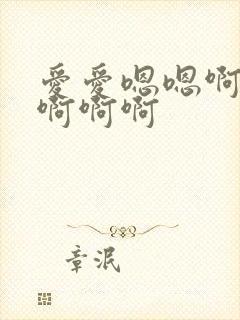 爱爱嗯嗯啊
啊啊啊
章泯